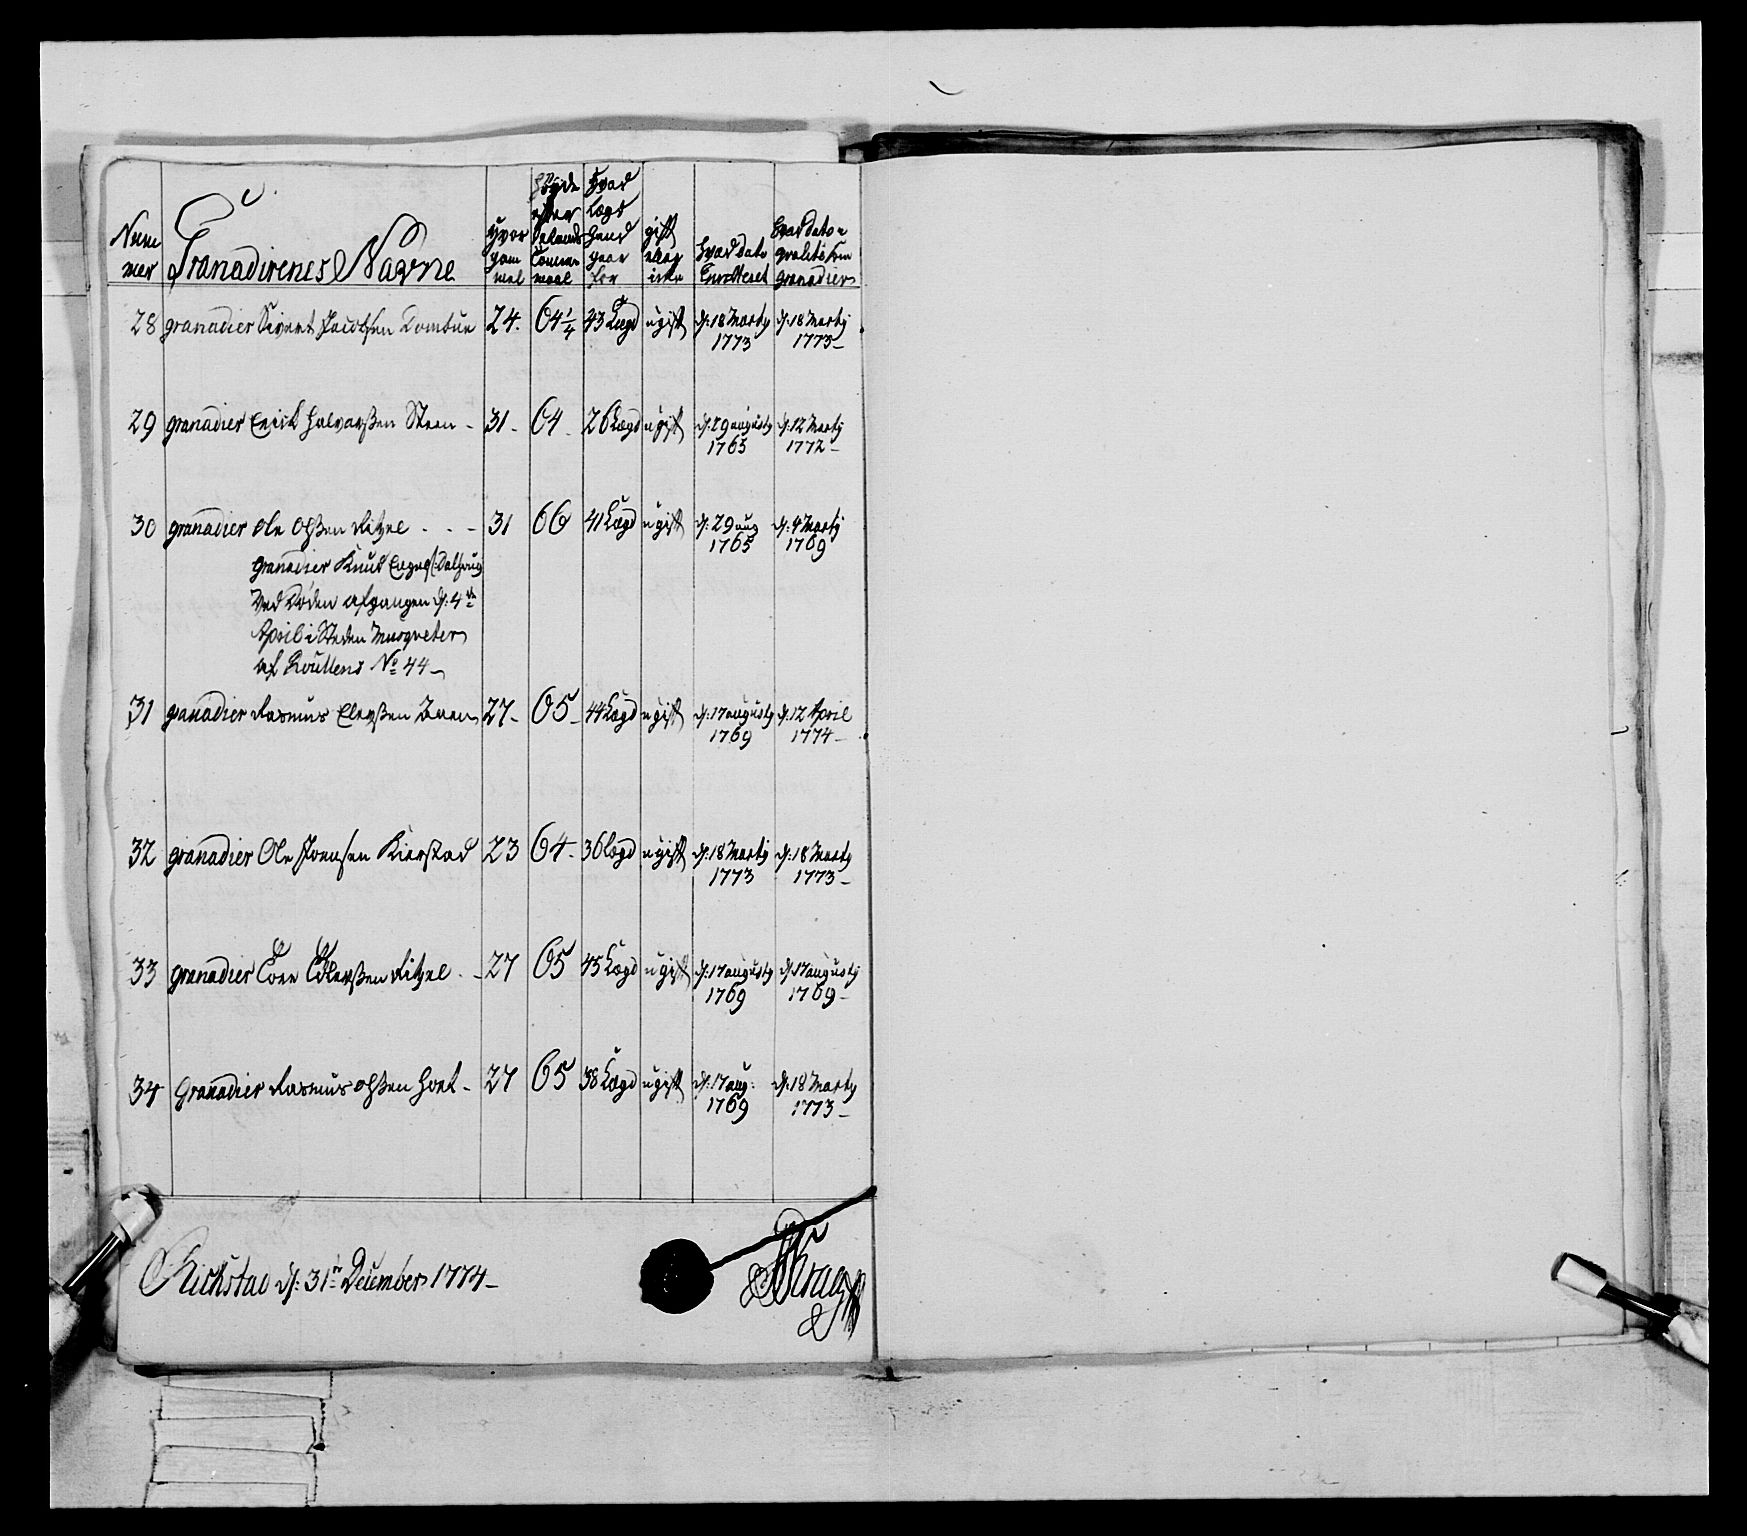 Num
mer
Granadirenes Navne
Hvor
gam
mel
Høyde
efter
Commer
maal
Hvad
Lægd
Hand
gaar
for
gift
eller
icke
hvad dato
Enrolleret
hvad dato
granadier
28 granadier Sivert Jacobsen Tomtue 24. 64 1/4 43 Lægd ugift d: 18 Martij 1773 d: 18 Martij 1773
29 granadier Erick Halvorßen Steen - 31. 64 26 Lægd ugift d: 29 augusty 1765 d: 12 Martij 1772
30 granadier Ole Olßen Ritzel . . - 31 66 41 Lægd ugift d: 29 aug 1765 d: 4 Martij 1769
granadier Knud
Ved Døden afgangen d: 4de
April i Steden Musqveter
af Roullens No 44
31 granadier Rasmus Elerßen 27- 65- 44 Lægd ugift d: 17 augusty 1769 d: 12 April 1774
32 granadier Ole Joensen Kierstad 23 64- 36 Lægd ugift d: 18 Martij 1773 d: 18 Marty 1773
33 granadier Tore Ellerßen Ritzel - 27 65 45 Lægd ugift d: 17 augusty 1769 d: 17 augusty 1769
34 Granadier Rasmus Olßen Hoel - 27 65 38 Lægd ugift d: 17 aug: 1769 d: 18 Marty 1773
Rickstad d: 31te December 1774
Krag